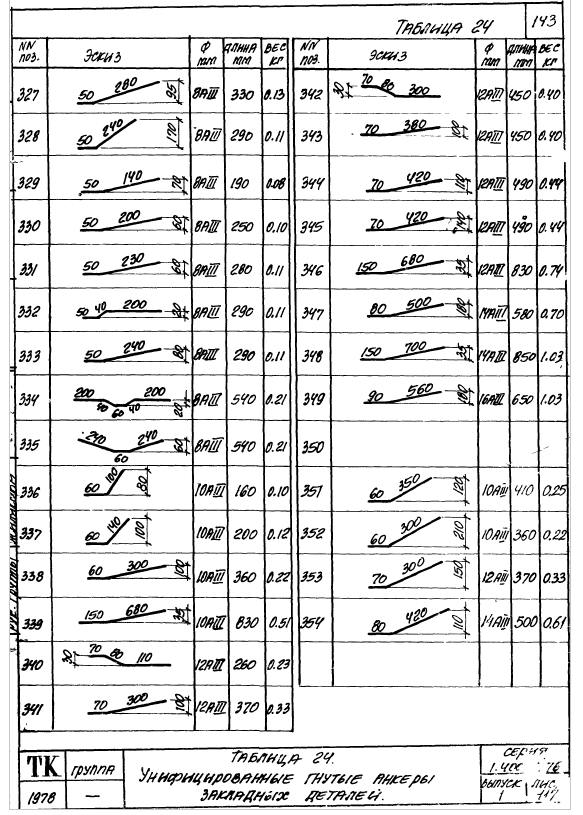 143
ТАБЛИЦА 24
NN ПОЗ. ЭСКИЗ Ф мм ДЛИНА мм ВЕС кг
327 50 280 95 8АIII 330 0.13
328 50 240 170 8АIII 290 0.11
329 50 140 70 8АIII 190 0.08
330 50 200 60 8АIII 250 0.10
331 50 230 60 8АIII 280 0.11
332 50 40 200 20 8АIII 290 0.11
333 50 240 80 8АIII 290 0.11
334 200 40 60 40 200 20 8АIII 540 0.21
335 240 60 240 60 8АIII 540 0.21
336 60 100 80 10АIII 160 0.10
337 60 140 100 10АIII 200 0.12
338 60 300 100 10АIII 360 0.22
339 150 680 35 10АIII 830 0.51
340 30 70 80 110 12АIII 260 0.23
341 70 300 100 12АIII 370 0.33
NN ПОЗ. ЭСКИЗ Ф мм ДЛИНА мм ВЕС кг
342 30 70 80 300 12АIII 450 0.40
343 70 380 100 12АIII 450 0.40
344 70 420 110 12АIII 490 0.44
345 70 420 140 12АIII 490 0.44
346 150 680 35 12АIII 830 0.74
347 80 500 180 14АIII 580 0.70
348 150 700 35 14АIII 850 1.03
349 90 560 180 16АIII 650 1.03
350
351 60 350 120 10АIII 410 0.25
352 60 300 210 10АIII 360 0.22
353 70 300 150 12АIII 370 0.33
354 80 420 110 14АIII 500 0.61
ТК ГРУППА
1978 —
ТАБЛИЦА 24.
УНИФИЦИРОВАННЫЕ ГНУТЫЕ АНКЕРЫ
ЗАКЛАДНЫХ ДЕТАЛЕЙ.
СЕРИЯ
1.400 76
ВЫПУСК 1
ЛИС. 117